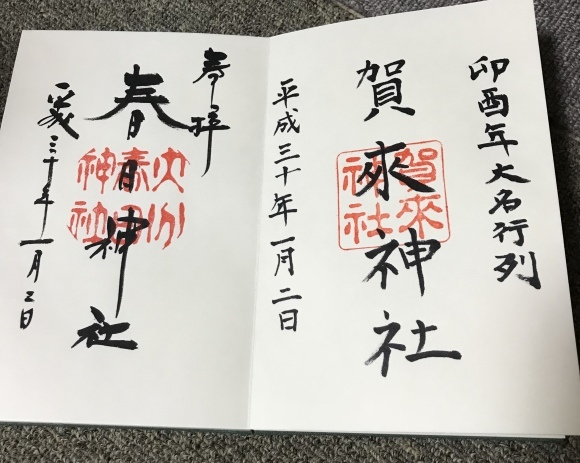 卯酉年大名行列
賀來神社
賀来神社
平成三十年一月二日
奉拝
春日神社
大分春日神社
平成三十年一月二日